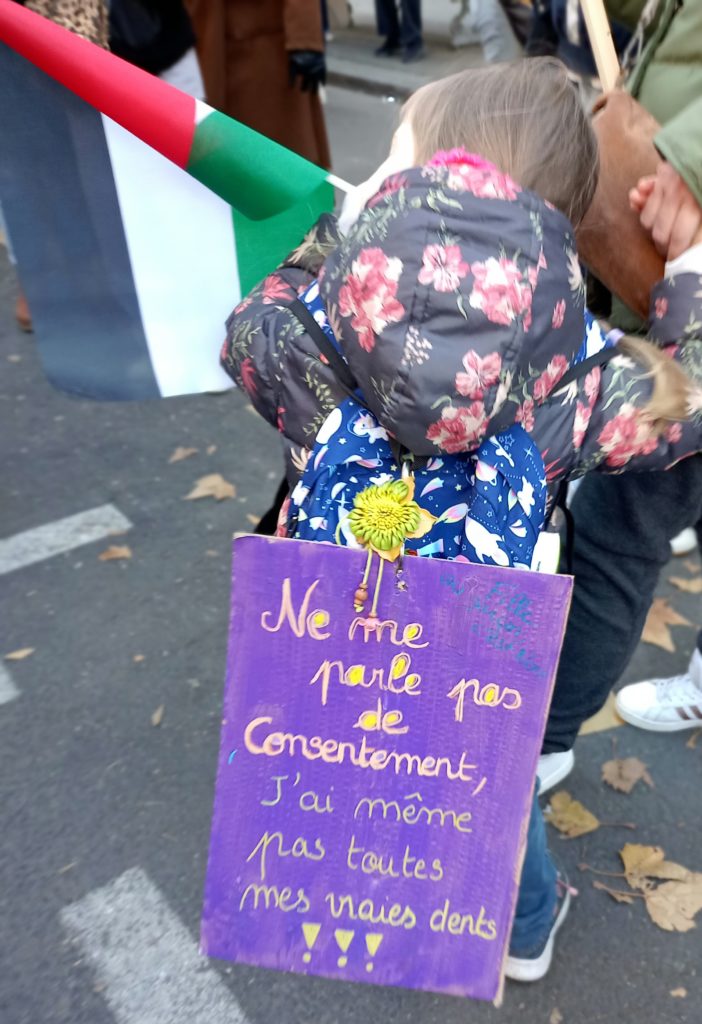 Ne me
parle pas
de
Consentement,
J'ai même
pas toutes
mes vraies dents
!!!
Fille